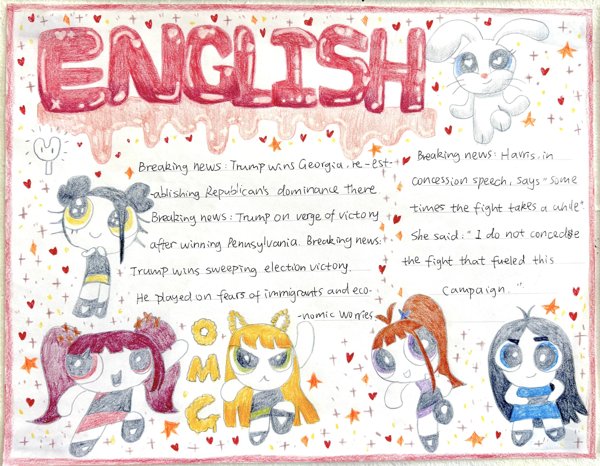 ENGLISH
Breaking news: Trump wins Georgia, re-est-
-ablishing Republican's dominance there
Breaking news: Trump on verge of victory
after winning Pennsylvania. Breaking news:
Trump wins sweeping election victory.
He played on fears of immigrants and eco-
-nomic worries
Breaking news: Harris, in
concession speech, says "some
times the fight takes a while"
She said: "I do not concede
the fight that fueled this
campaign."
OMG